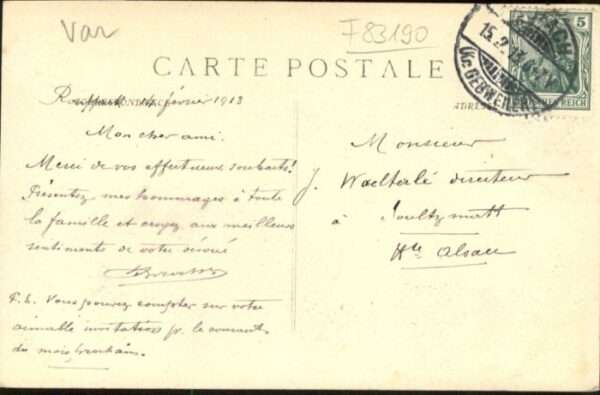 Var
F 83190
CARTE POSTALE
Rouffach 14 février 1913
Mon cher ami.
Merci de vos affectueux souhaits!
Présentez mes hommages à toute
la famille et croyez aux meilleurs
sentiments de votre dévoué
P.S. Vous pouvez compter sur votre
aimable invitation pr. le courant
du mois prochain.
5
ACH
15.2.
(Kr. GEBWEILER)
REICH
Monsieur
J. Waelterlé directeur
à Soultzmatt
Hte Alsace